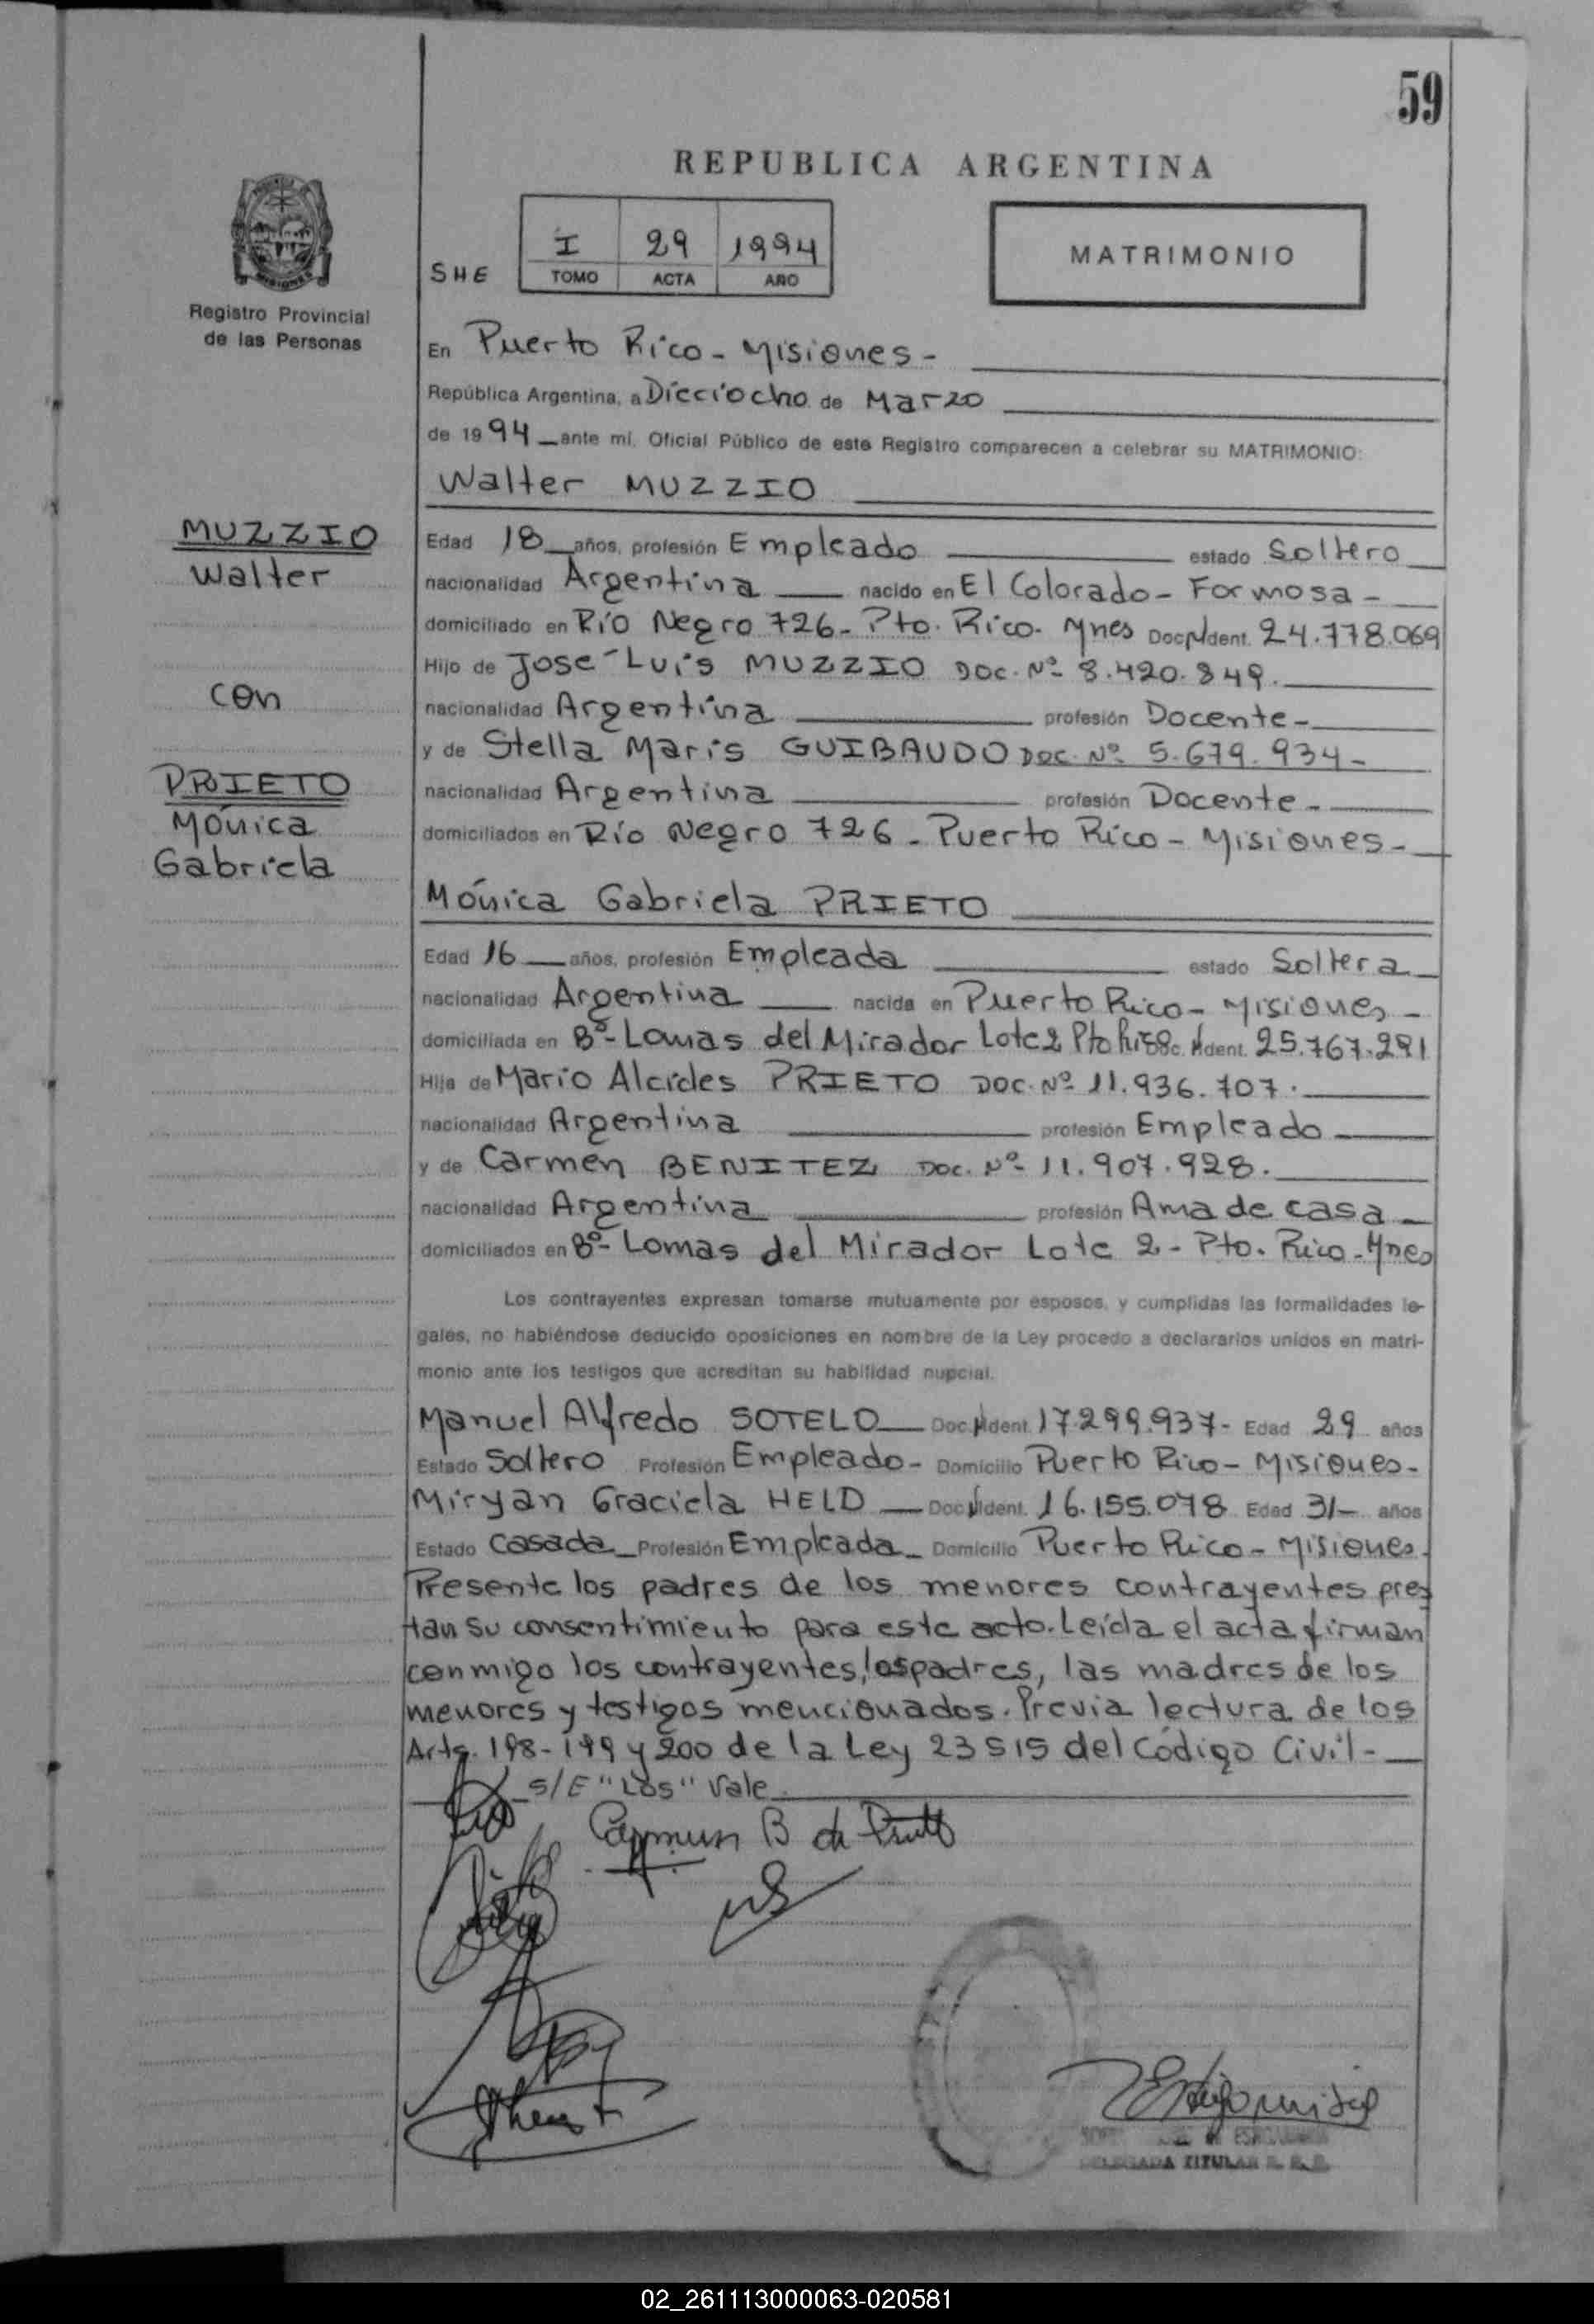 59
REPUBLICA ARGENTINA
I 29 1994
SHE TOMO ACTA AÑO
MATRIMONIO
Registro Provincial
de las Personas
En Puerto Rico - Misiones -
República Argentina, a Dieciocho de Marzo
de 1994 ante mí, Oficial Público de este Registro comparecen a celebrar su MATRIMONIO:
Walter MUZZIO
MUZZIO
Walter
con
PRIETO
Mónica
Gabriela
Edad 18 años, profesión Empleado estado Soltero
nacionalidad Argentina nacido en El Colorado - Formosa -
domiciliado en Río Negro 726 - Pto. Rico - Mnes Doc. Ident. 24.778.069
Hijo de José Luis MUZZIO Doc. Nº 8.420.849.
nacionalidad Argentina profesión Docente -
y de Stella Maris GUIBAUDO Doc. Nº 5.679.934 -
nacionalidad Argentina profesión Docente -
domiciliados en Río Negro 726 - Puerto Rico - Misiones -
Mónica Gabriela PRIETO
Edad 16 años, profesión Empleada estado Soltera
nacionalidad Argentina nacida en Puerto Rico - Misiones -
domiciliada en Bº - Lomas del Mirador Lote 2 Pto Rico Doc. Ident. 25.767.291
Hija de Mario Alcides PRIETO Doc. Nº 11.936.707.
nacionalidad Argentina profesión Empleado
y de Carmen BENITEZ Doc. Nº 11.907.928.
nacionalidad Argentina profesión Ama de casa
domiciliados en Bº - Lomas del Mirador Lote 2 - Pto. Rico - Mnes
Los contrayentes expresan tomarse mutuamente por esposos, y cumplidas las formalidades le-
gales, no habiéndose deducido oposiciones en nombre de la Ley procedo a declararlos unidos en matri-
monio ante los testigos que acreditan su habilidad nupcial.
Manuel Alfredo SOTELO Doc. Ident. 17.299.937 - Edad 29 años
Estado Soltero Profesión Empleado - Domicilio Puerto Rico - Misiones -
Miryan Graciela HELD Doc. Ident. 16.155.078 Edad 31 - años
Estado Casada Profesión Empleada Domicilio Puerto Rico - Misiones.
Presente los padres de los menores contrayentes pres
tan su consentimiento para este acto. Leída el acta firman
conmigo los contrayentes, los padres, las madres de los
menores y testigos mencionados. Previa lectura de los
Arts. 198 - 199 y 200 de la Ley 23515 del Código Civil -
S/E "Los" Vale
Carmen B de
DELEGADA TITULAR
02_261113000063-020581